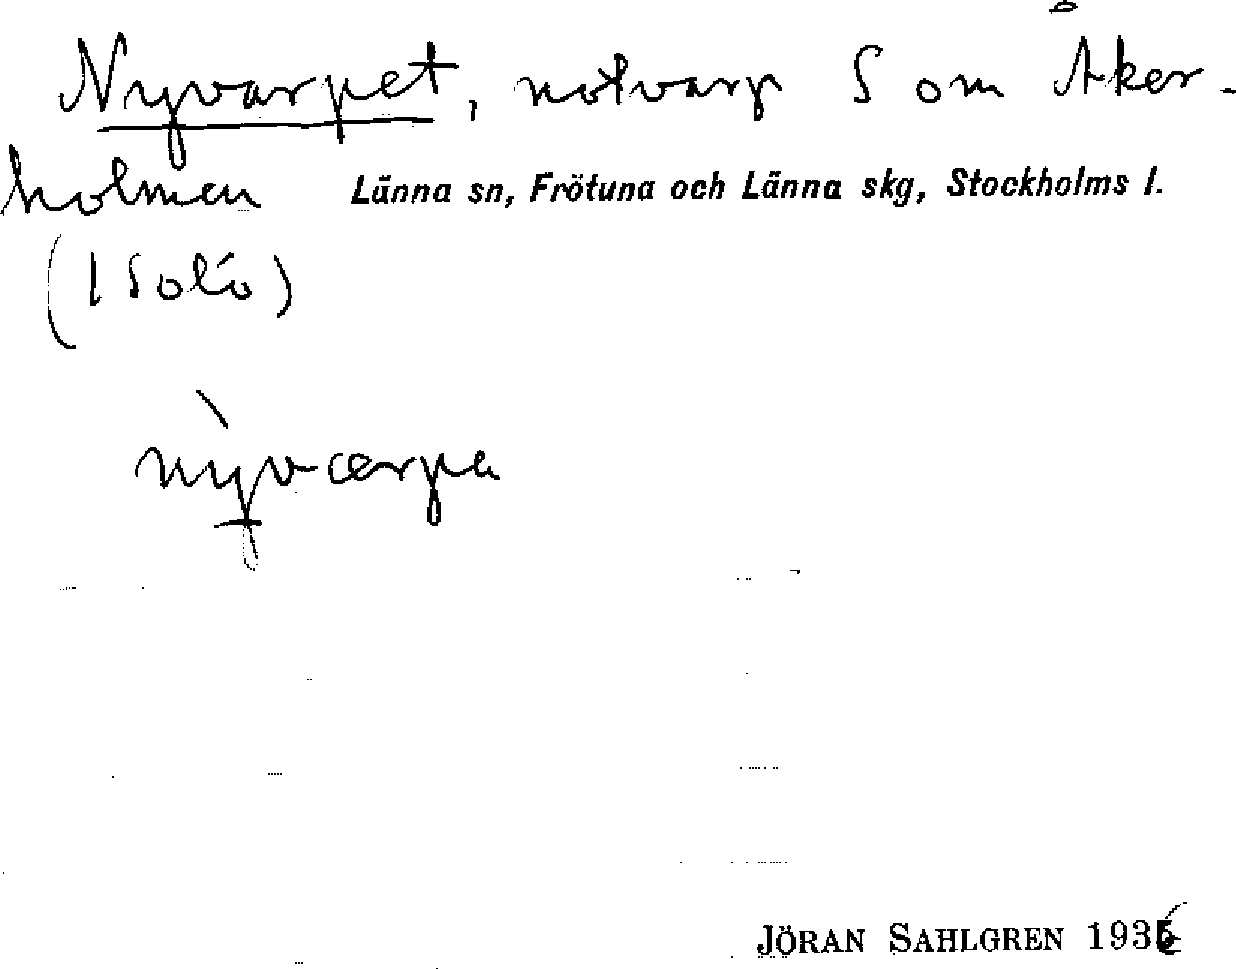 Nyvarpet, notvarp S om Åker-
holmen Länna sn, Frötuna och Länna skg, Stockholms l.
(1 Solö)
nỳvarpa
JÖRAN SAHLGREN 1936